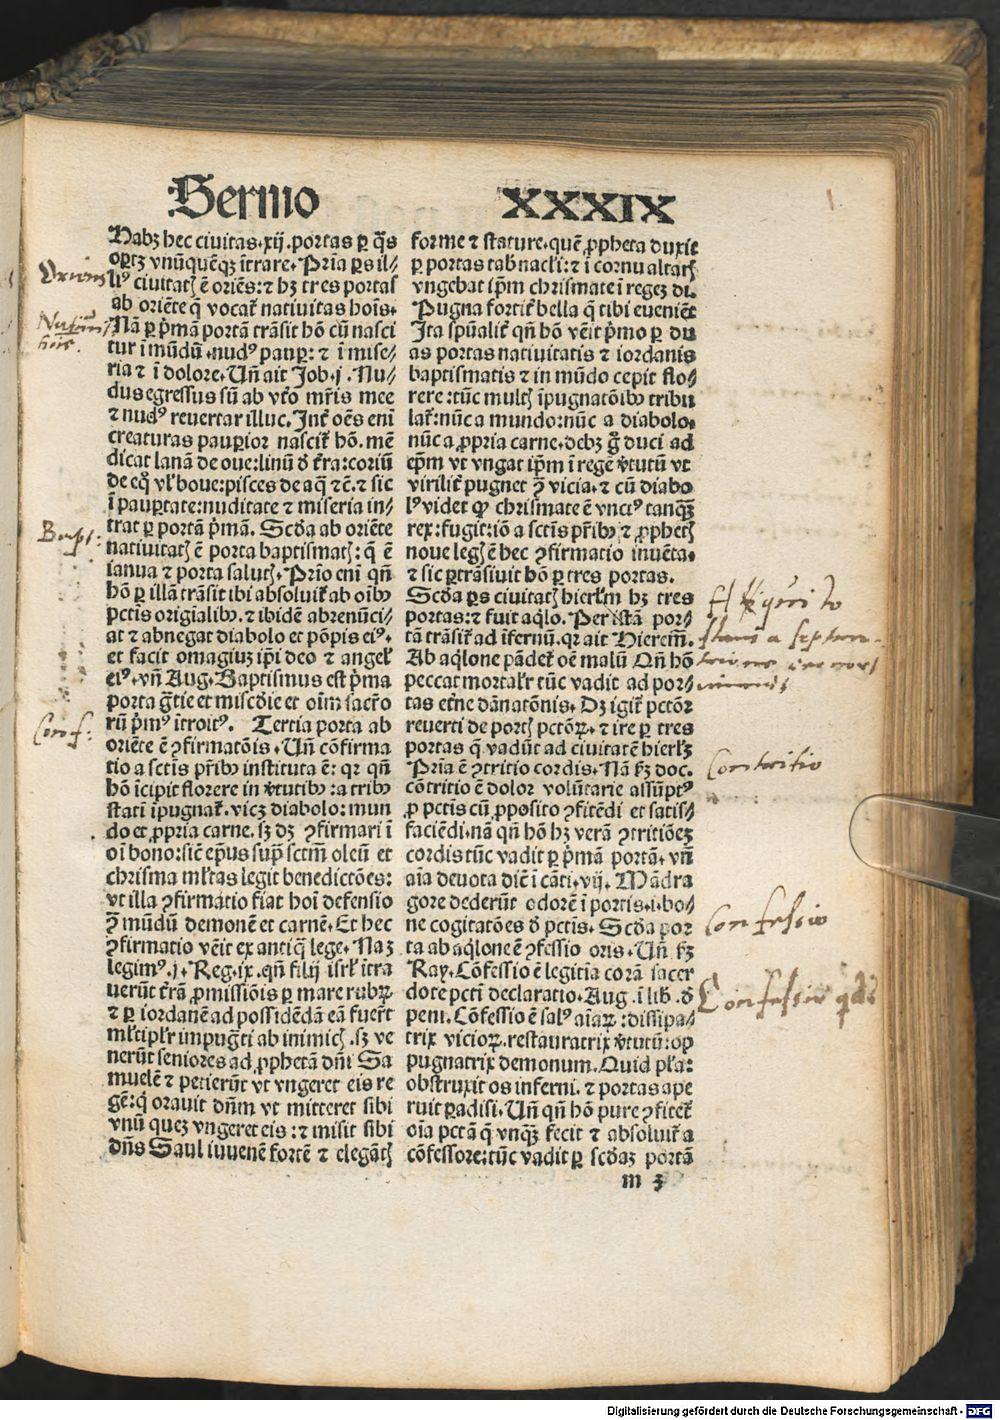 Sermo XXXIX
Habꝫ hec ciuitas.xij.portas ꝑ q̄s
oꝑtꝫ vnūquēqꝫ ītrare. Pria ꝑs il⸗
liꝰ ciuitatꝭ ē oriēs: ⁊ hꝫ tres portas
ab oriēte q̄ vocat᷑ natiuitas hoīs.
Nā ꝑ pͥmā portā trāsit hō cū nasci
tur ī mūdū.nudꝰ pauꝑ: ⁊ ī mise⸗
ria ⁊ ī dolore. Un̄ ait Job.j. Nu⸗
dus egressus sū ab vt̕o mr̄is mee
⁊ nudꝰ reuertar illuc. Int̕ oēs eni
creaturas pauꝑior nascit᷑ hō. mē
dicat lanā de oue: linū ꝺ̕ t̕ra: coriū
de eqͦ vl̕ boue: pisces de aq̄ ⁊c̄. ⁊ sic
ī pauꝑtate: nuditate ⁊ miseria in⸗
trat ꝑ portā pͥmā. Scꝺa ab oriēte
natiuitatꝭ ē porta baptismatꝭ: q̄ ē
ianua ⁊ porta salutꝭ. Prīo eni qn̄
hō ꝑ illā trāsit ibi absoluit᷑ ab oībꝰ
pctīs origīalibꝰ. ⁊ ibidē abrenūci⸗
at ⁊ abnegat diabolo et pōpis eiꝰ.
et facit omagiuꝫ ip̄i deo ⁊ angel̕
eiꝰ. vn̄ Aug. Baptismus est pͥma
porta gr̄tie et misc̄die et oīm sacr̄o
rū pͥmꝰ ītroitꝰ. Tertia porta ab
oriēte ē ꝯfirmatōis. Un̄ cōfirma
tio a sctīs pr̄ibꝰ instituta ē: qꝛ qn̄
hō īcipit florere in v̕tutibꝰ: a tribꝰ
statī ipugnat᷑. vicꝫ diabolo: mun
do et ꝓpria carne. sꝫ dꝫ ꝯfirmari ī
oī bono: sic̄ ep̄us suꝑ sctm̄ oleū et
chrisma ml̕tas legit benedictōes:
vt illa ꝯfirmatio fiat hoī defensio
ꝯ̄ mūdū demonē et carnē. Et hec
ꝯfirmatio vēit ex antiq̄ lege. Naꝫ
legimꝰ.j. Reg.ix. qn̄ filij isrl̕ ītra
uerūt t̕rā ꝓmissiōis ꝑ mare rubꝝ
⁊ ꝑ iordanē ad possidēdā eā fuer̄t
ml̕tipl̕r impuḡti ab inimicꝭ. sꝫ ve
nerūt seniores ad ꝓphetā dn̄i Sa
muelē ⁊ petierūt vt vngeret eis re
gē: qͥ orauit dn̄m vt mitteret sibi
vnū queꝫ vngeret eis: ⁊ misit sibi
dn̄s Saul iuuenē fortē ⁊ elegātꝭ
forme ⁊ stature. quē ꝓpheta duxit
ꝑ portas tab̕nacl̕i: ⁊ ī cornu altarꝭ
vngebat ip̄m chrismate ī regeꝫ di.
Pugna fortit᷑ bella q̄ tibi eueniēt
Ita sp̄ualit᷑ qn̄ hō vēit pͥmo ꝑ du
as portas natiuitatis ⁊ iordanis
baptismatis ⁊ in mūdo cepit flo⸗
rere: tūc multꝭ īpugnatōibꝰ tribu
lat᷑: nūc a mundo: nūc a diabolo.
nūc a ꝓpria carne. debꝫ g̊ duci ad
ep̄m vt vngat ip̄m ī regē v̕tutū vt
virilit᷑ pugnet ꝯ̄ vicia. ⁊ cū diabo
lꝰ videt ꝙ chrismate ē vnctꝰ tanq̄ꝫ
rex: fugit: iō a sctīs pr̄ibꝰ ⁊ ꝓphetꝭ
noue legꝭ ē hec ꝯfirmatio inuēta.
⁊ sic ꝑtrāsiuit hō ꝑ tres portas.
Scꝺa ꝑs ciuitatꝭ hierl̕m hꝫ tres
portas: ⁊ fuit aqͥlo. Per istā por⸗
tā trāsit᷑ ad īfernū. qꝛ ait Hierem̄.
Ab aqͥlone pādet᷑ oē malū Qn̄ hō
peccat mortal̕r tūc vadit ad por⸗
tas et̕ne dānatōnis. Dꝫ igit᷑ pctōr
reuerti de portꝭ pctōꝝ. ⁊ ire ꝑ tres
portas q̄ vadūt ad ciuitatē hierl̕ꝫ
Pria ē ꝯtritio cordis. Nā ẜꝫ doc.
cōtritio ē dolor volūtarie assūptꝰ
ꝓ pctīs cū ꝓposito ꝯfitēdi et satis⸗
faciēdi. nā qn̄ hō hꝫ verā ꝯtritiōeꝫ
cordis tūc vadit ꝑ pͥmā portā. vn̄
aīa deuota dic̄ ī cāti.vij. Mādra
gore dederūt odorē ī portis.i.bo⸗
ne cogitatōes ꝺ̕ pctīs. Scꝺa por
ta ab aqͥlone ē ꝯfessio oris. Un̄ ẜꝫ
Ray. Cōfessio ē legitīa corā sacer
dote pctī declaratio. Aug. ī lib. ꝺ̕
peni. Cōfessio ē salꝰ aīaꝝ: dissipa⸗
trix vicioꝝ. restauratrix v̕tutū: op
pugnatrix demonum. Quid pl̕a:
obstruxit os inferni. ⁊ portas ape
ruit ꝑadisi. Un̄ qn̄ hō pure ꝯfitet᷑
oīa pctā q̄ vnqͣꝫ fecit ⁊ absoluit᷑ a
cōfessore: tūc vadit ꝑ scꝺaꝫ portā
m 3
Oriens
Bapt:
Conf:
Contritio
Confessio
Confessio
Digitalisierung gefördert durch die Deutsche Forschungsgemeinschaft - DFG